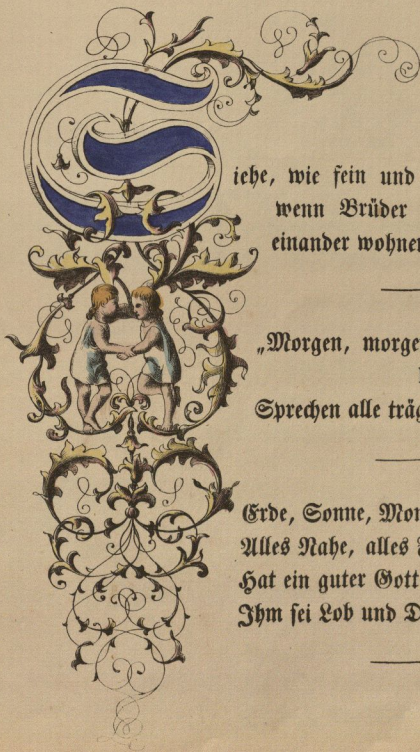 Siehe, wie fein und
wenn Brüder
einander wohnen
„Morgen, morge
Sprechen alle träg
Erde, Sonne, Mon
Alles Nahe, alles
Hat ein guter Gott
Ihm sei Lob und D